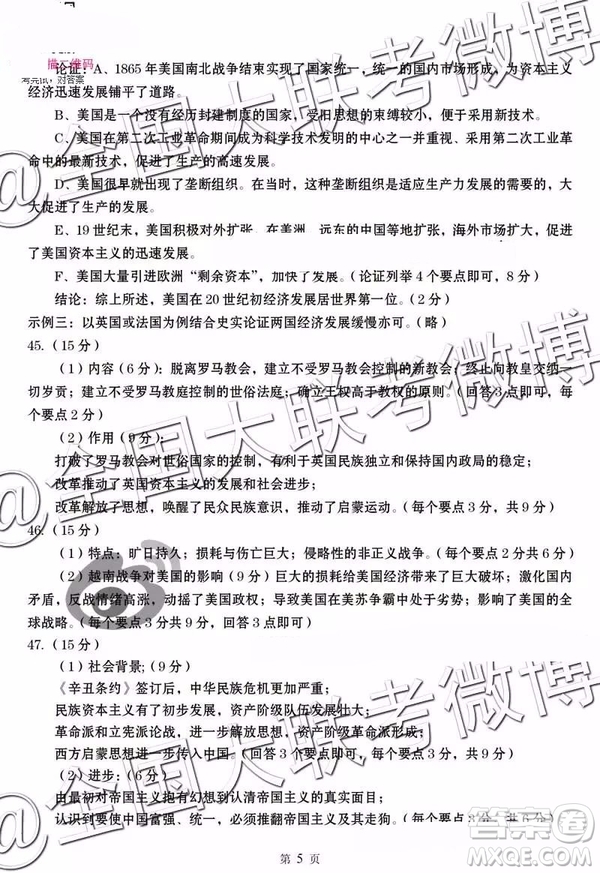 描二维码
考完试，对答案
论证：A、1865 年美国南北战争结束实现了国家统一，统一的国内市场形成，为资本主义
经济迅速发展铺平了道路。
B、美国是一个没有经历封建制度的国家，受旧思想的束缚较小，便于采用新技术。
C、美国在第二次工业革命期间成为科学技术发明的中心之一并重视、采用第二次工业革
命中的最新技术，促进了生产的高速发展。
D、美国很早就出现了垄断组织。在当时，这种垄断组织是适应生产力发展的需要的，大
大促进了生产的发展。
E、19 世纪末，美国积极对外扩张，在美洲、远东的中国等地扩张，海外市场扩大，促进
了美国资本主义的迅速发展。
F、美国大量引进欧洲“剩余资本”，加快了发展。（论证列举 4 个要点即可，8 分）
结论：综上所述，美国在 20 世纪初经济发展居世界第一位。（2 分）
示例三：以英国或法国为例结合史实论证两国经济发展缓慢亦可。（略）
45.（15 分）
（1）内容（6 分）：脱离罗马教会，建立不受罗马教会控制的新教会；终止向教皇交纳一
切岁贡；建立不受罗马教庭控制的世俗法庭；确立王权高于教权的原则。（回答 3 点即可，每
个要点 2 分）
（2）作用（9 分）：
打破了罗马教会对世俗国家的控制，有利于英国民族独立和保持国内政局的稳定；
改革推动了英国资本主义的发展和社会进步；
改革解放了思想，唤醒了民众民族意识，推动了启蒙运动。（每个要点 3 分，共 9 分）
46.（15 分）
（1）特点：旷日持久；损耗与伤亡巨大；侵略性的非正义战争。（每个要点 2 分共 6 分）
（2）越南战争对美国的影响（9 分）巨大的损耗给美国经济带来了巨大破坏；激化国内
矛盾，反战情绪高涨，动摇了美国政权；导致美国在美苏争霸中处于劣势；影响了美国的全
球战略。（每个要点 3 分共 9 分，回答 3 点即可）
47.（15 分）
（1）社会背景；（9 分）
《辛丑条约》签订后，中华民族危机更加严重；
民族资本主义有所发展，资产阶级队伍发展壮大；
革命派和立宪派论战，进一步解放思想，资产阶级革命派形成；
西方启蒙思想进一步传入中国。（回答 3 个要点即可，每个要点 3 分，共 9 分）
（2）进步：（6 分）
由最初对帝国主义抱有幻想到认清帝国主义的真实面目；
认识到要使中国富强、统一，必须推翻帝国主义及其走狗。（每个要点 3 分，共 6 分）
第 5 页
@全国大联考微博
@全国大联考微博
@全国大联考微博
答案圈
MXQE.COM